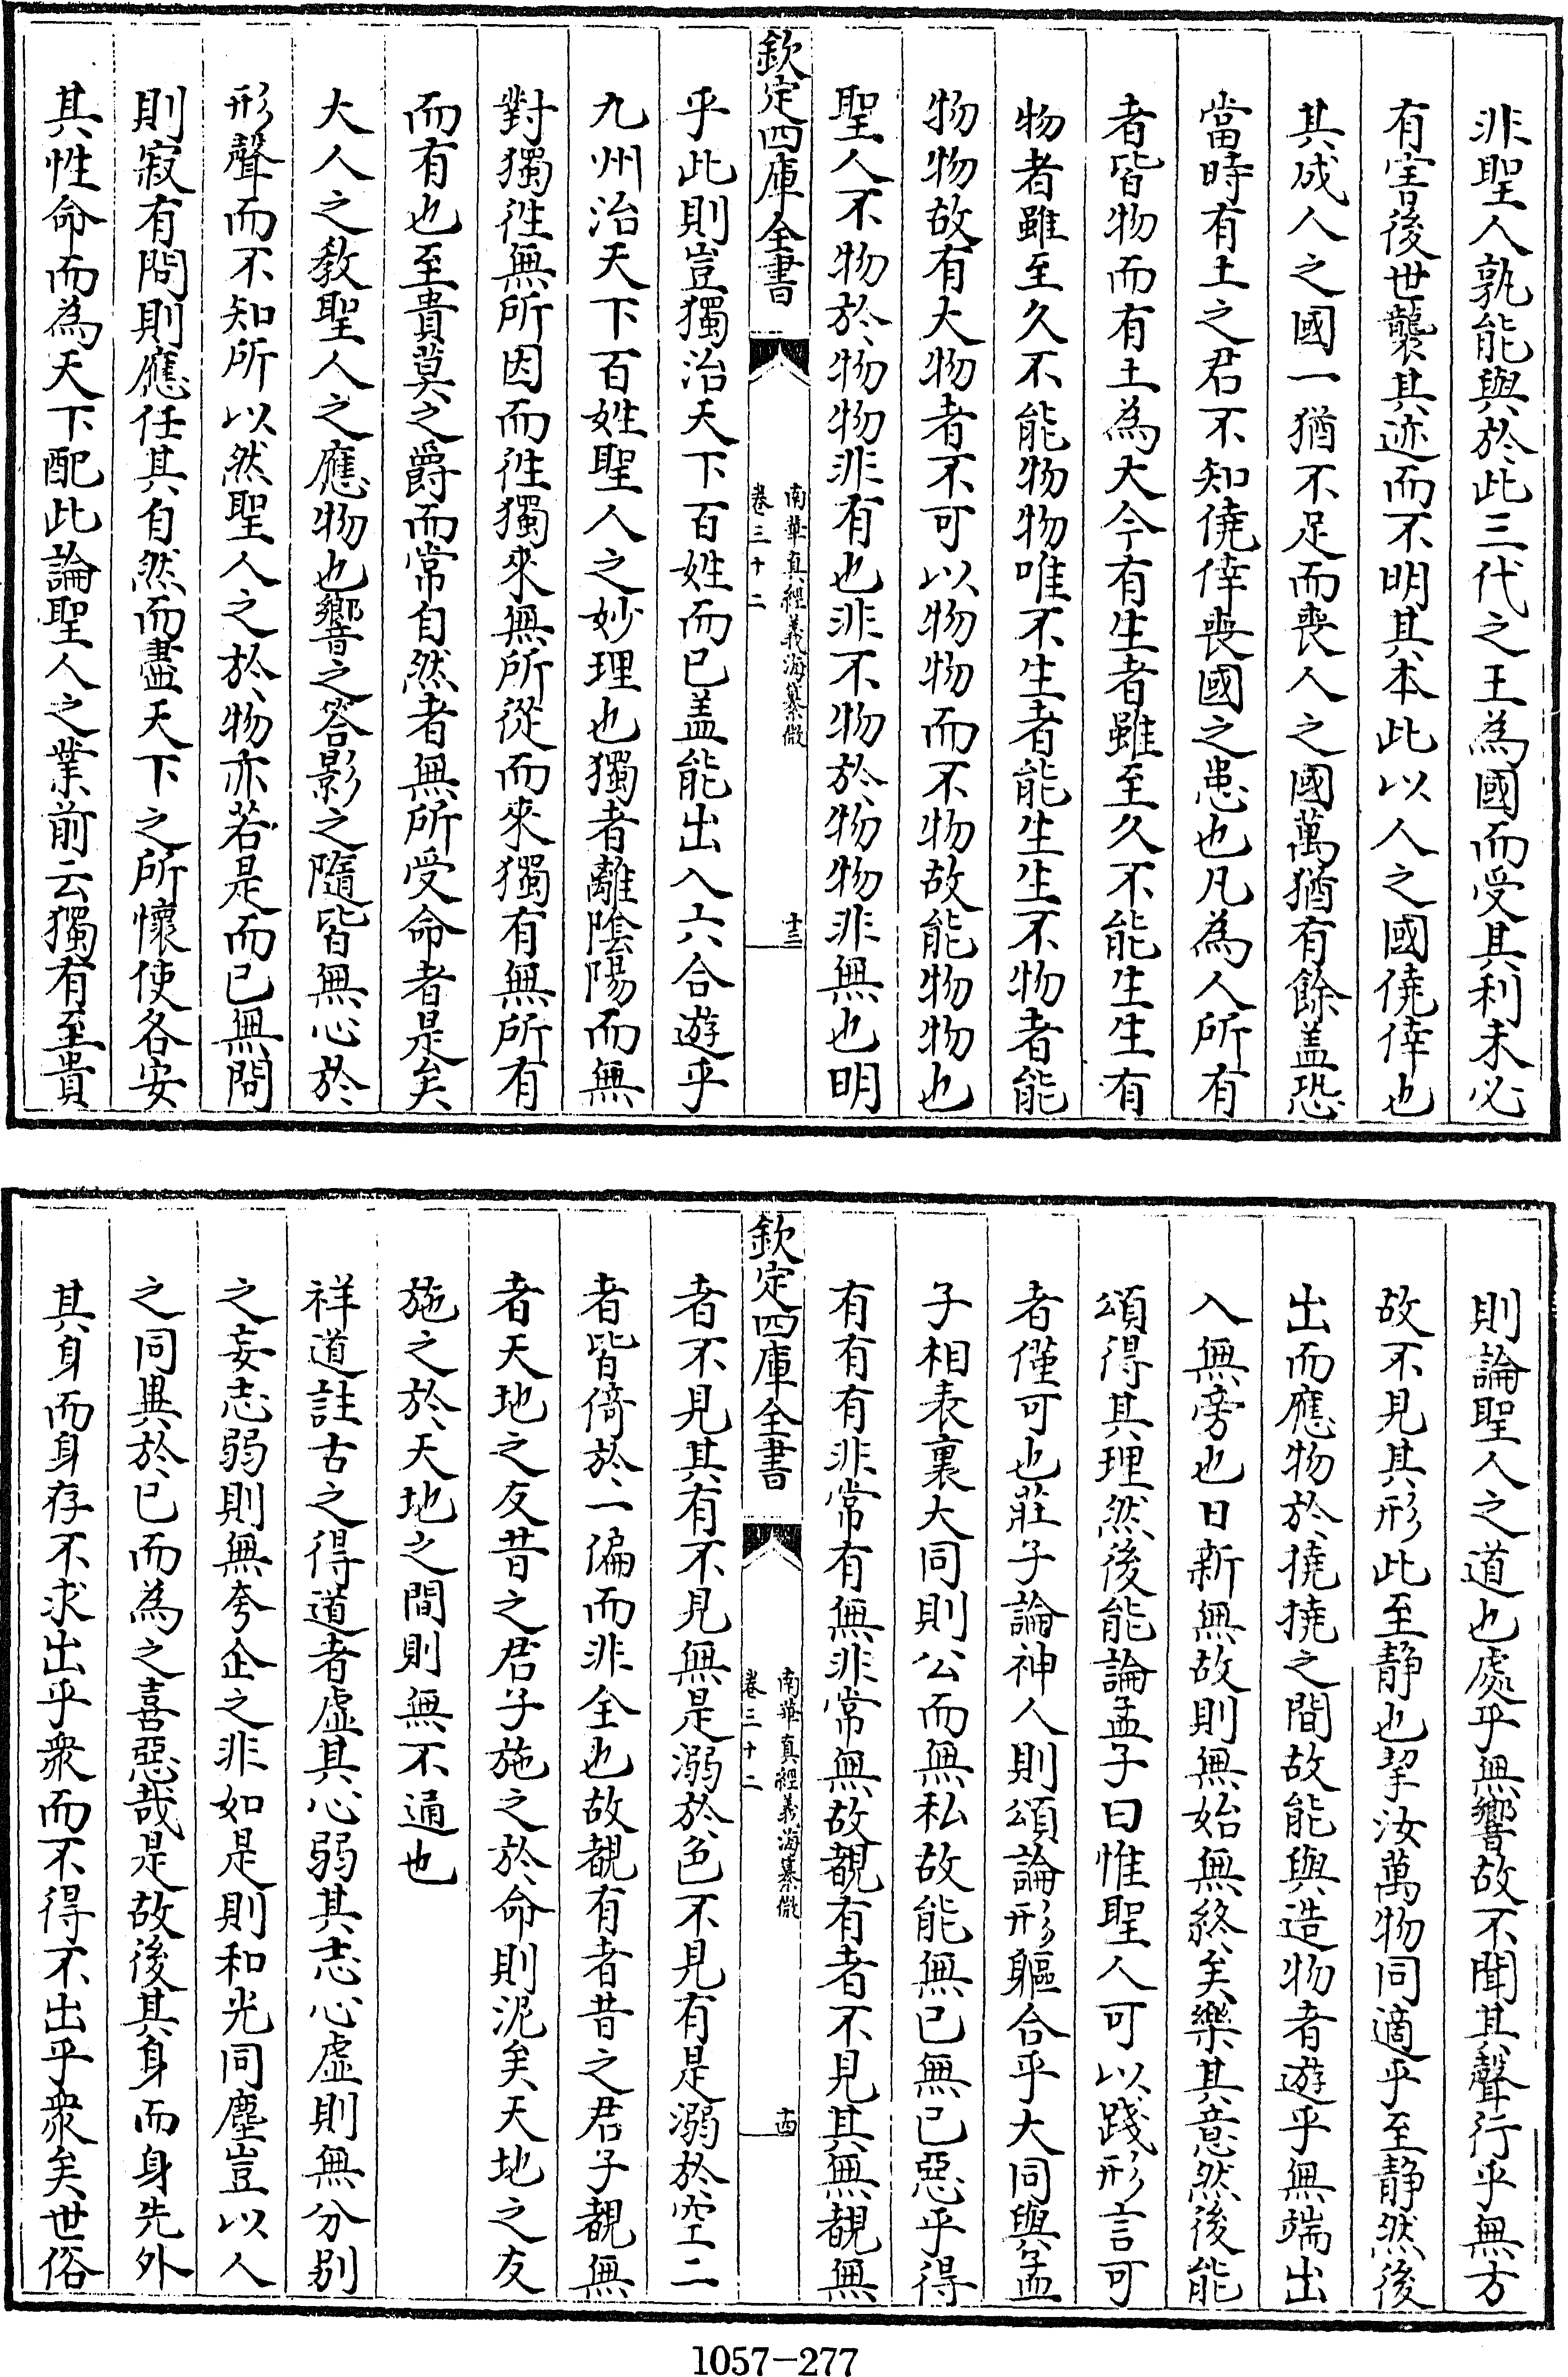 非聖人孰能與於此三代之王為國而受其利未必
有害後世襲其迹而不明其本此以人之國僥倖也
其成人之國一猶不足而喪人之國萬猶有餘盖恐
當時有土之君不知僥倖喪國之患也凡為人所有
者皆物而有土為大今有生者雖至久不能生生有
物者雖至久不能物物唯不生者能生生不物者能
物物故有大物者不可以物物而不物故能物物也
聖人不物於物物非有也非不物於物物非無也明
欽定四庫全書
南華真經義海纂微
卷三十二
十三
乎此則豈獨治天下百姓而已盖能出入六合遊乎
九州治天下百姓聖人之妙理也獨者離陰陽而無
對獨徃無所因而徃獨來無所從而來獨有無所有
而有也至貴莫之爵而常自然者無所受命者是矣
大人之教聖人之應物也響之答影之隨皆無心於
形聲而不知所以然聖人之於物亦若是而已無問
則寂有問則應任其自然而盡天下之所懷使各安
其性命而為天下配此論聖人之業前云獨有至貴
則論聖人之道也處乎無響故不聞其聲行乎無方
故不見其形此至靜也挈汝萬物同適乎至靜然後
出而應物於撓撓之間故能與造物者遊乎無端出
入無旁也日新無故則無始無終矣樂其意然後能
頌得其理然後能論孟子曰惟聖人可以踐形言可
者僅可也莊子論神人則頌論形軀合乎大同與孟
子相表裏大同則公而無私故能無已無已惡乎得
有有有非常有無非常無故覩有者不見其無覩無
欽定四庫全書
南華真經義海纂微
卷三十二
十四
者不見其有不見無是溺於色不見有是溺於空二
者皆倚於一偏而非全也故覩有者昔之君子覩無
者天地之友昔之君子施之於命則泥矣天地之友
施之於天地之間則無不通也
祥道註古之得道者虛其心弱其志心虛則無分别
之妄志弱則無夸企之非如是則和光同塵豈以人
之同異於已而為之喜惡哉是故後其身而身先外
其身而身存不求出乎衆而不得不出乎衆矣世俗
1057-277